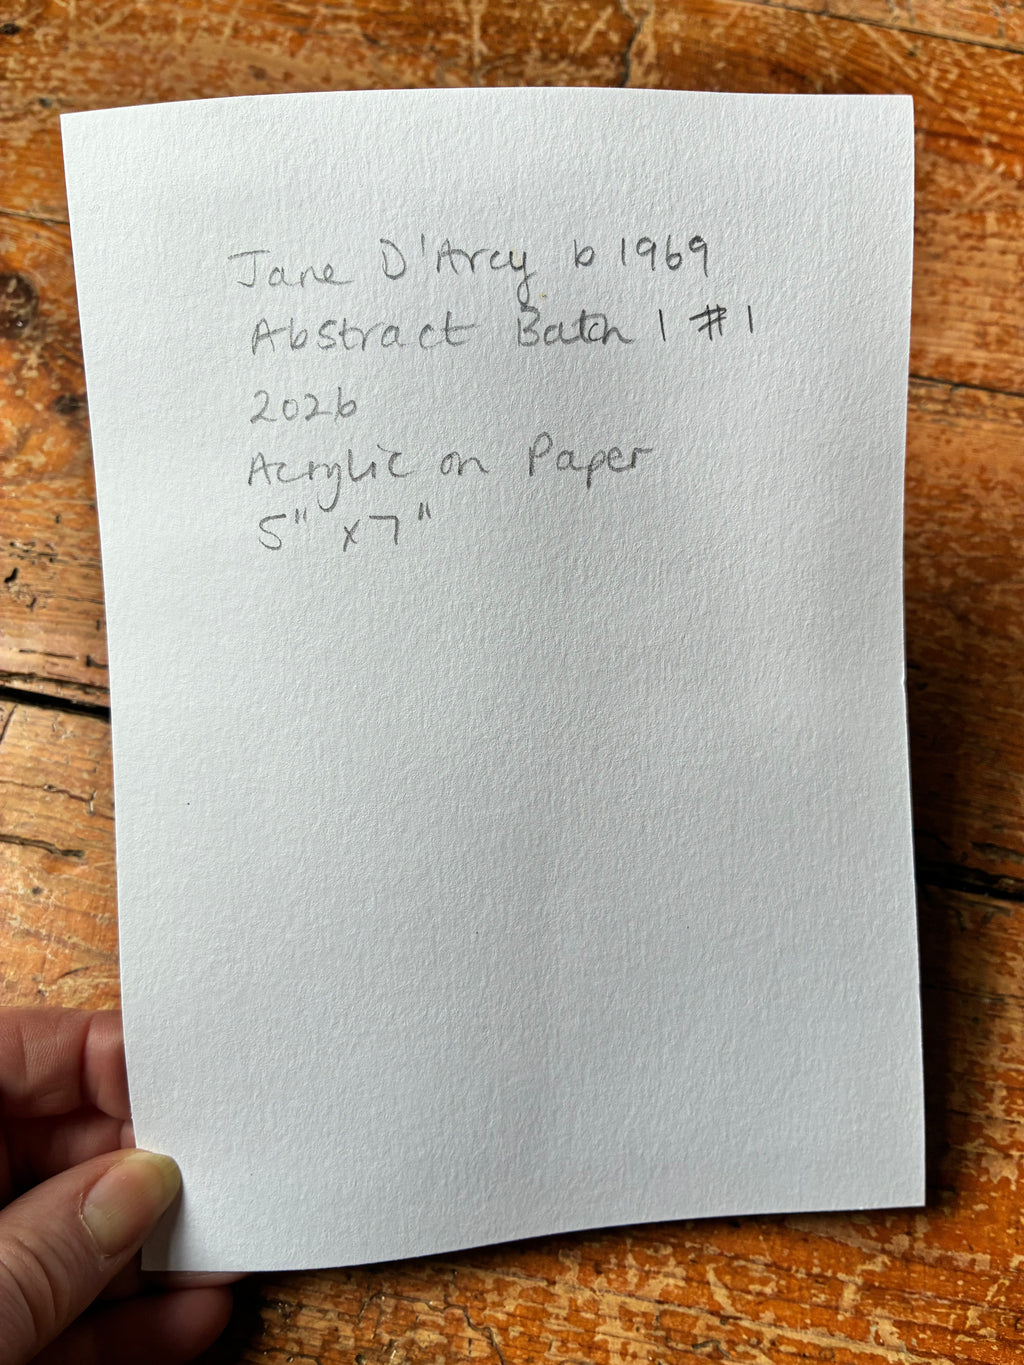 Jane D'Arcy b 1969
Abstract Batch 1 #1
2026
Acrylic on Paper
5" x 7"